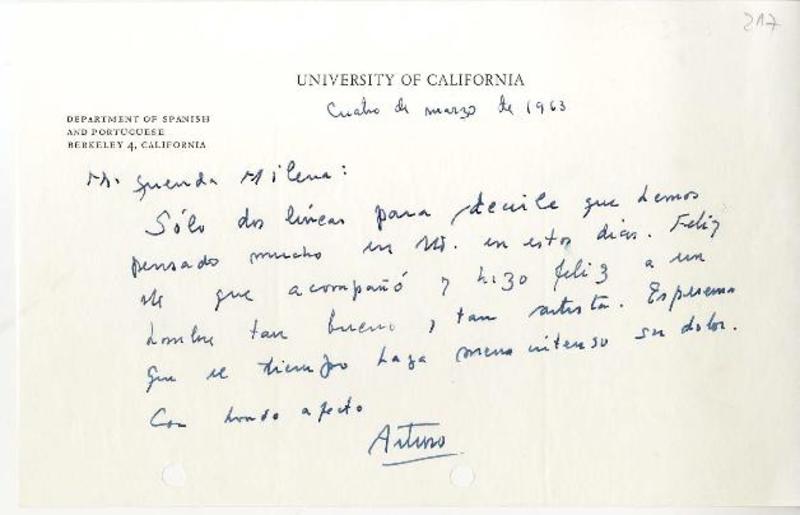 217
UNIVERSITY OF CALIFORNIA
Cuatro de marzo de 1963
DEPARTMENT OF SPANISH
AND PORTUGUESE
BERKELEY 4, CALIFORNIA
Mi querida Milena:
Sólo dos líneas para decirle que hemos
pensado mucho en Ud. en estos días. Feliz
Ud. que acompañó y hizo feliz a un
hombre tan bueno y tan artista. Esperemos
que el tiempo haga menos intenso su dolor.
Con hondo afecto
Arturo